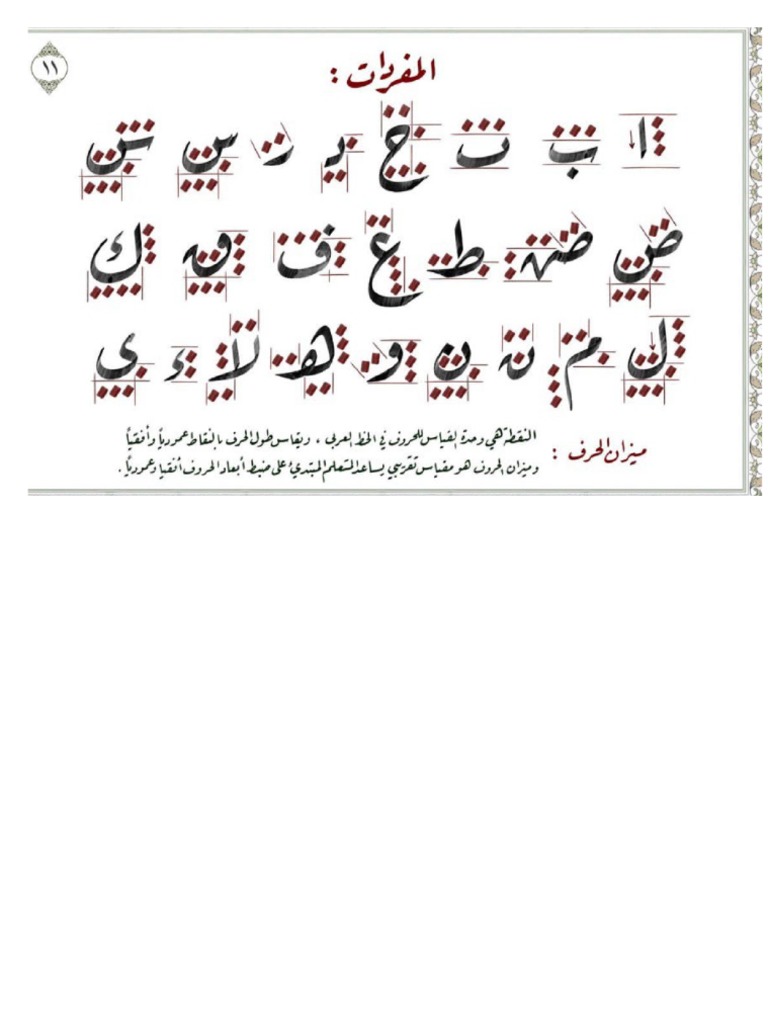 ١١
المفردات :
ا ب ت ج د ر س س
ص ص ط ع ف ق ك
ل م ن ن و ه لا ء ي
ميزان الحرف : النقطة هي وحدة القياس للحروف في الخط العربي ، ويقاس طول الحرف بالنقاط عمودياً وأفقياً
وميزان الحروف هو مقياس تقريبي يساعد المتعلم المبتدئ على ضبط أبعاد الحروف أفقيا وعمودياً .